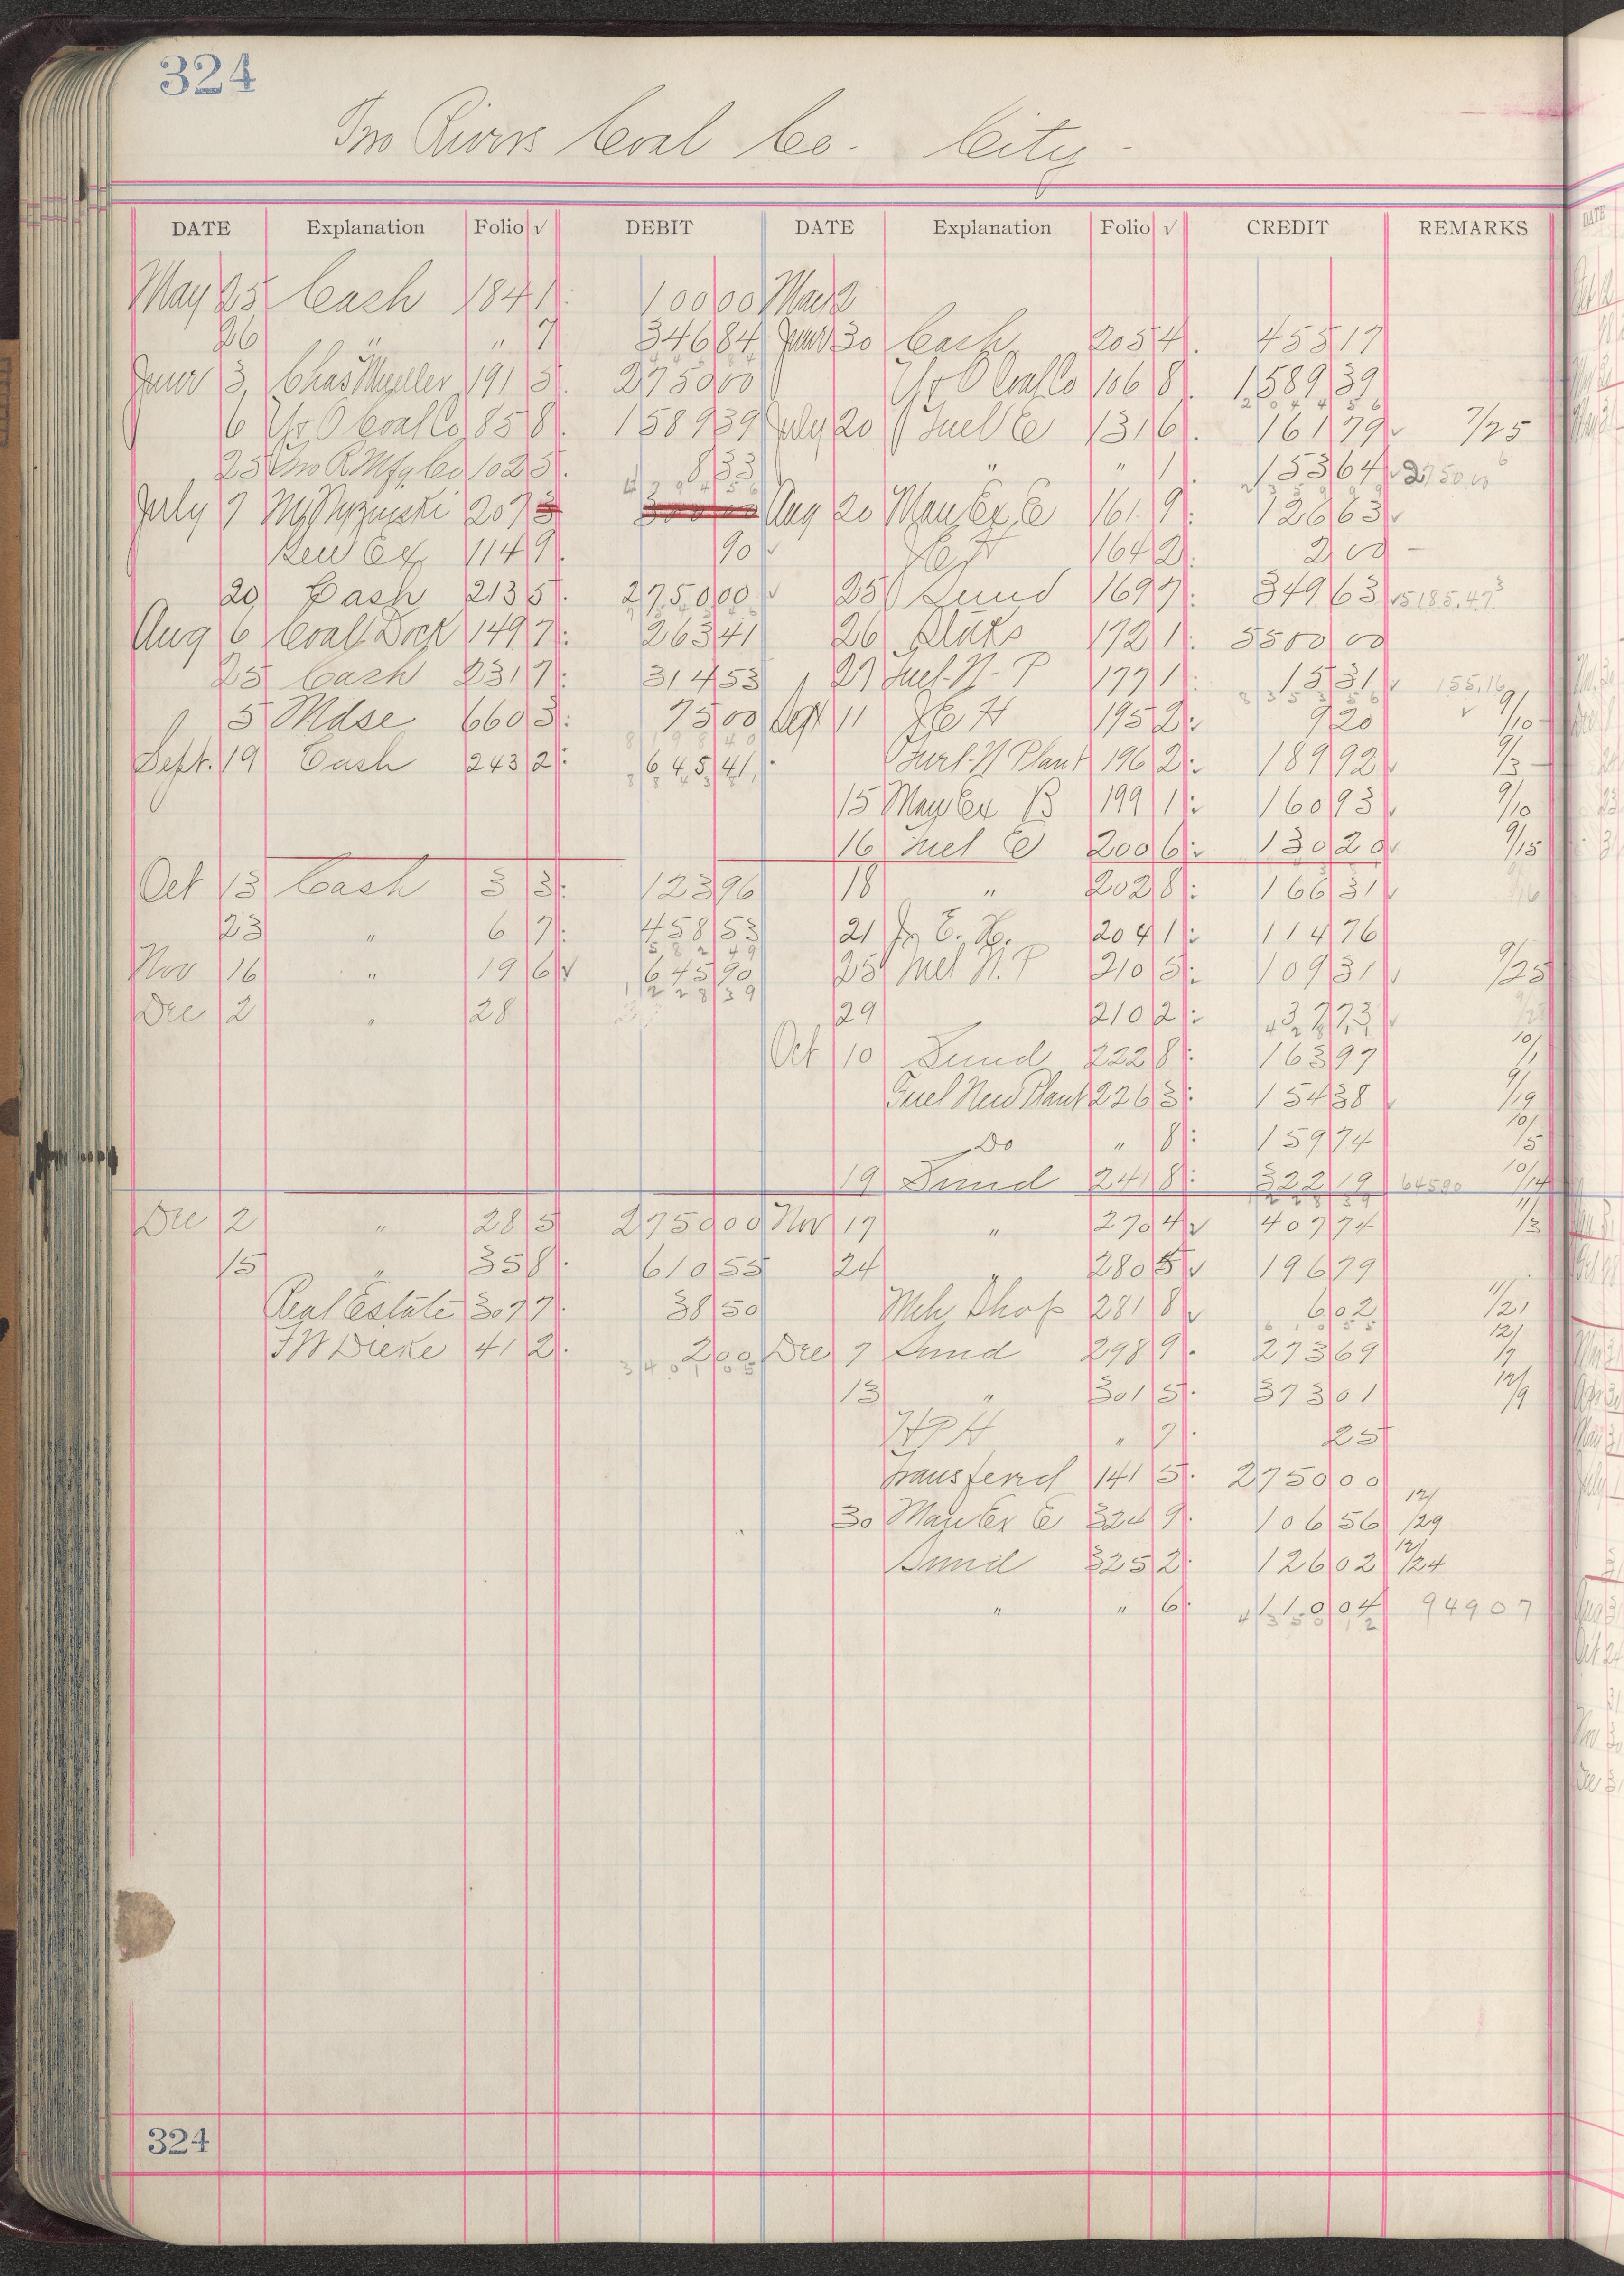 324
Two Rivers Coal Co. City
DATE Explanation Folio √ DEBIT DATE Explanation Folio √ CREDIT REMARKS
May 25 Cash 184 1 100 00 May 2
26 " " 7 346 84 June 30 Cash 205 4 455 17
June 3 Chas Mueller 191 5 2750 00 Y & O Coal Co 106 8 1589 39
6 Y & O Coal Co 85 8 1589 39 July 20 Fuel E 131 6 161 79 7/25
25 Two R Mfg Co 102 5 8 33 " " 1 153 64 2750.00
July 7 207 3 300 00 Aug 20 Man Ex E 161 9 126 63
Gen Ex 114 9 90 J E H 164 2 2 00
20 Cash 213 5 2750 00 25 Sund 169 7 349 63 5185.47
Aug 6 Coal Dock 149 7 263 41 26 172 1 5500 00
25 Cash 231 7 314 53 27 Fuel N-P 177 1 15 31 155.16
5 Mdse 660 3 75 00 Sept 11 J E H 195 2 9 20 9/10
Sept. 19 Cash 243 2 645 41 Fuel-N Plant 196 2 189 92 9/3
15 Man Ex B 199 1 160 93 9/10
16 Fuel E 200 6 130 20 9/15
Oct 13 Cash 3 3 123 96 18 " 202 8 166 31
23 " 6 7 458 53 21 J. E. H. 204 1 114 76
Nov 16 " 19 6 √ 645 90 25 Fuel N.P 210 5 109 31 9/25
Dec 2 " 28 29 210 2 37 73
Oct 10 Sund 222 8 163 97 10/1
Fuel New Plant 226 3 154 38 9/19
Do " 8 159 74 10/5
19 Sund 241 8 322 19 645 90 10/14
Dec 2 " 28 5 2750 00 Nov 17 " 270 4 √ 407 74 11/3
15 " 35 8 610 55 24 " 280 5 √ 196 79
Real Estate 307 7 38 50 Mch Shop 281 8 √ 6 02 11/21
F W Dicke 41 2 2 00 Dec 7 Sund 298 9 273 69 12/7
3401 05
13 " 301 5 373 01 12/9
H P H " 7 25
Transferred 141 5 2750 00
30 Man Ex E 324 9 106 56 12/29
Sund 325 2 126 02 12/24
" " 6 110 04 949 07
4350 12
324